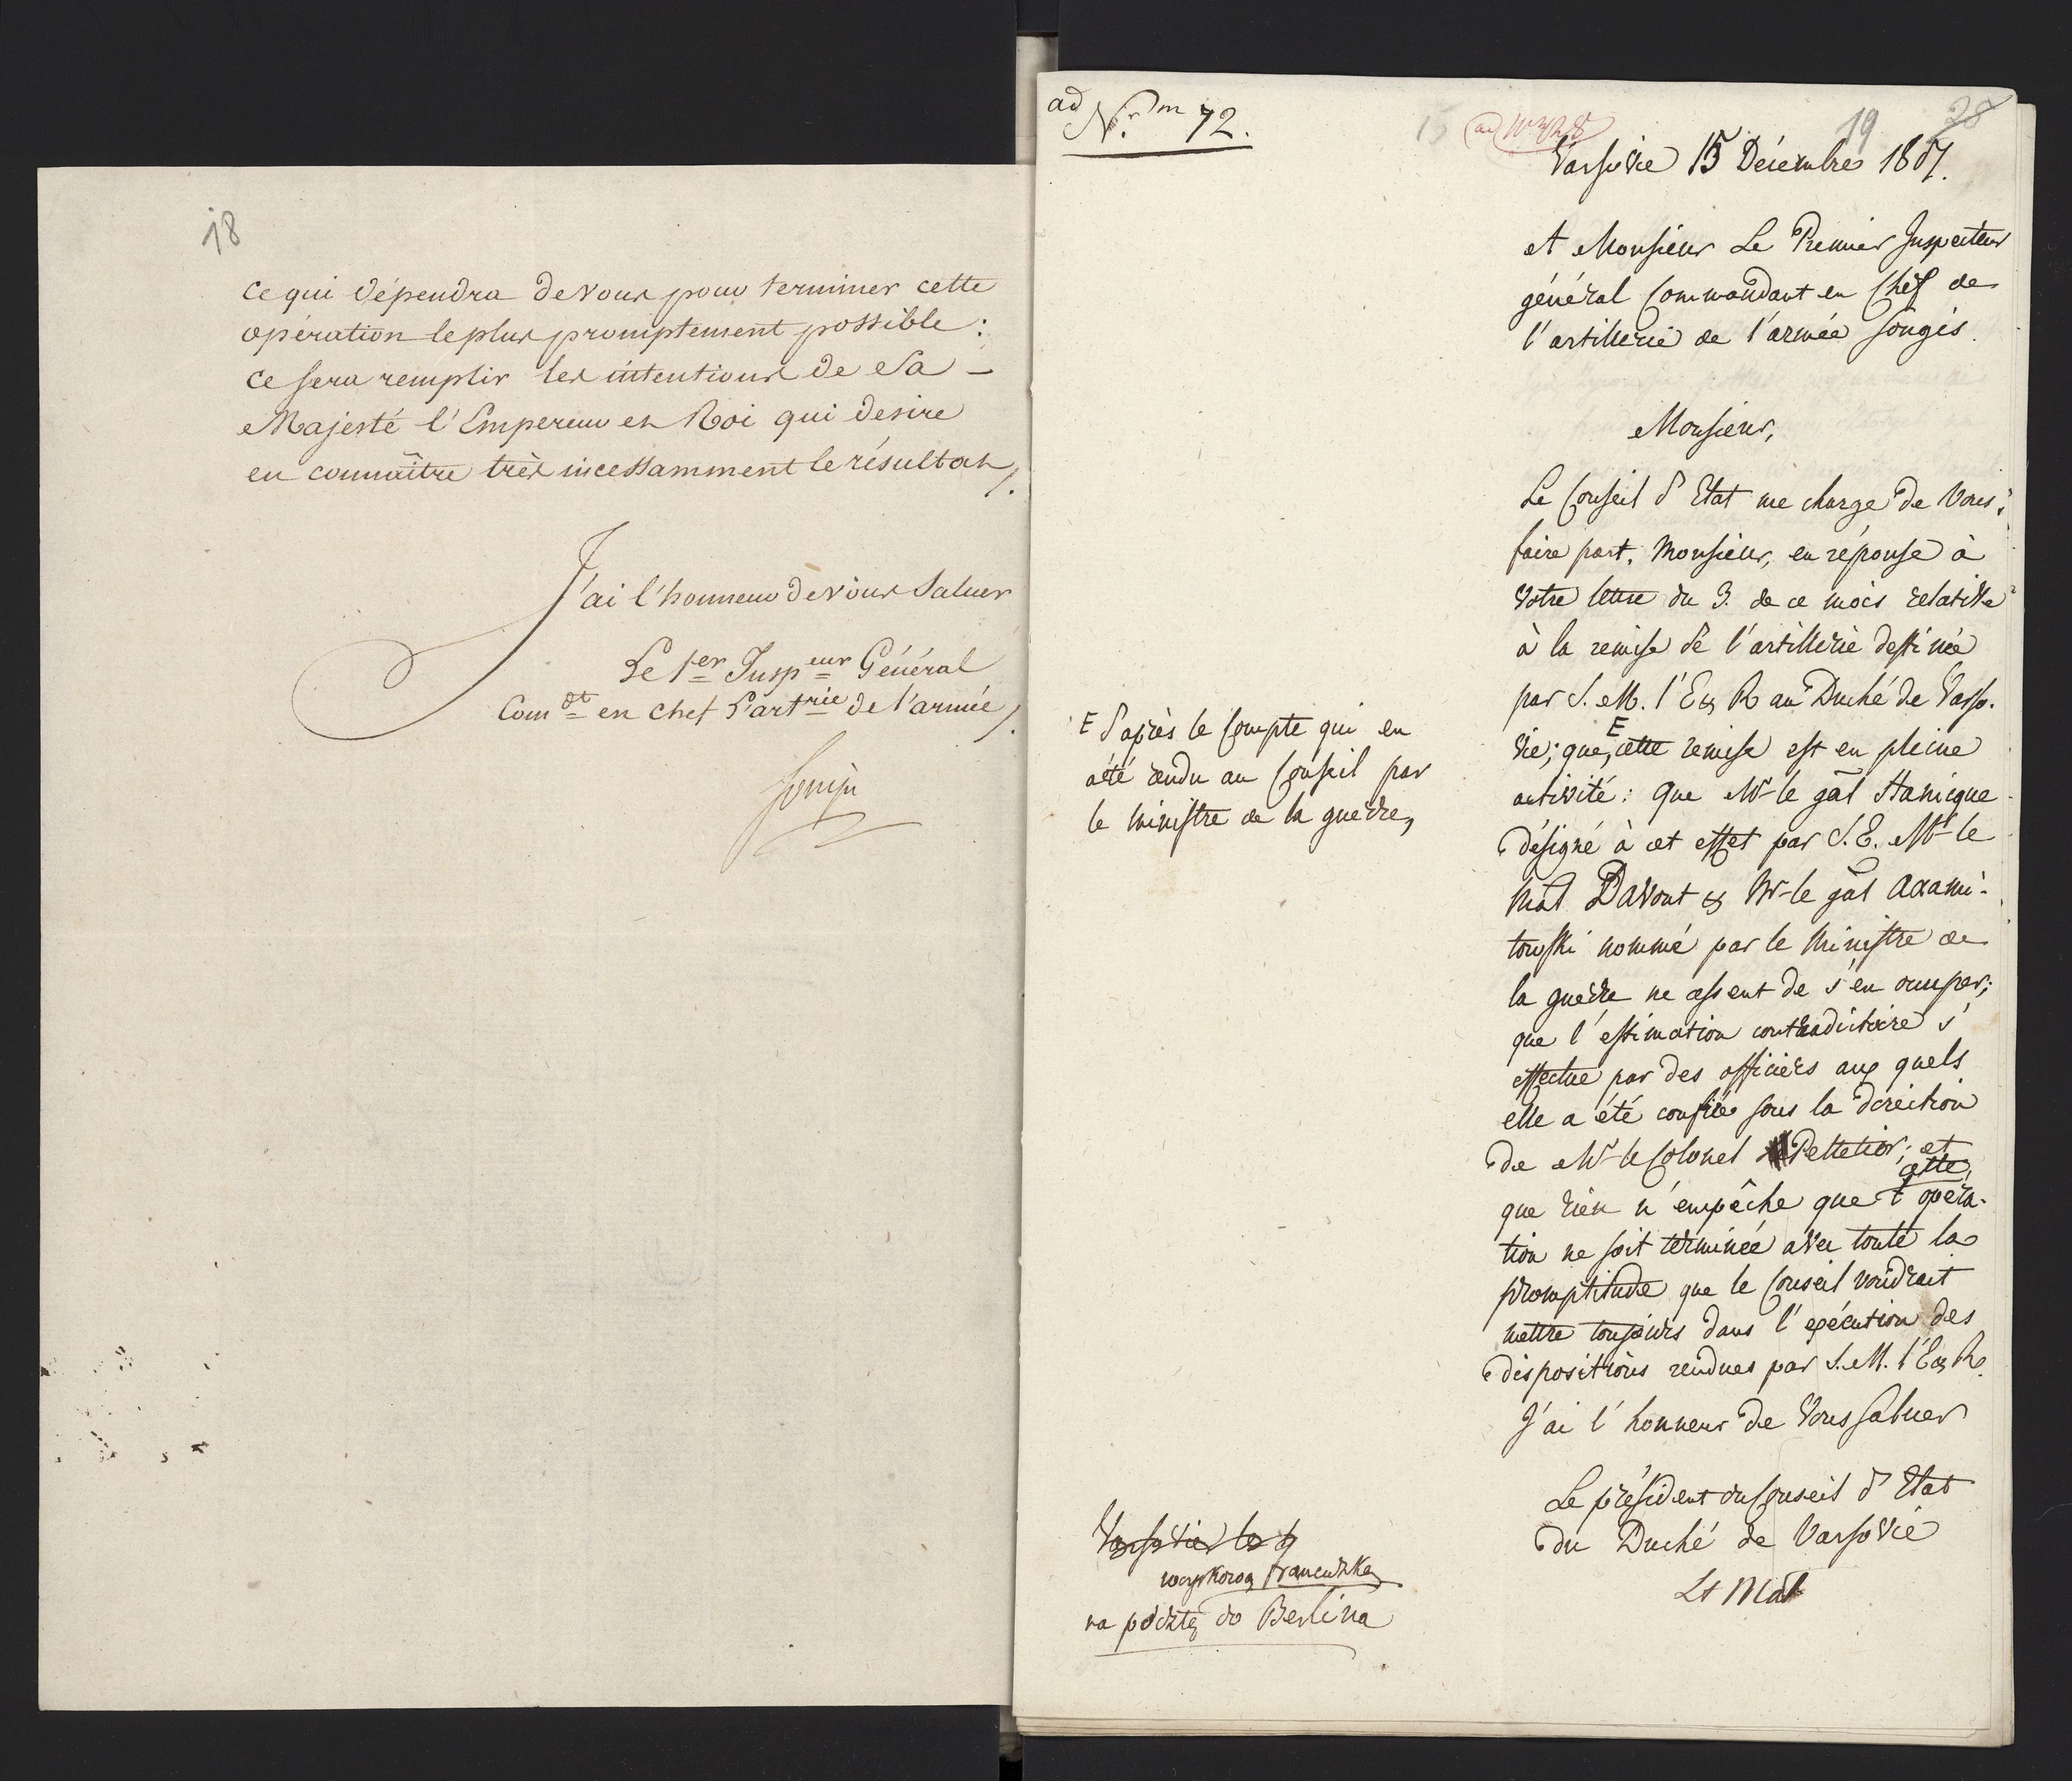 18
ce qui dépendra de vous pour terminer cette
opération le plus promptement possible :
ce sera remplir les intentions de Sa
Majesté l'Empereur et Roi qui desire
en connaître très incessamment le résultat /.
J'ai l'honneur de vous saluer
Le 1er Inspeur Général
Comdt en chef l'artrie de l'armée /.
Songis
ad Nrm 72.
15
19
28
Varsovie 15 Décembre 1807.
A Monsieur Le Premier Inspecteur
général Commandant en Chef de
l'artillerie de l'armée Songis.
Monsieur,
Le Conseil d'Etat me charge de Vous
faire part, Monsieur, en réponse à
Votre lettre du 3. de ce mois relative
à la remise de l'artillerie destinée
par S. M. l'E & R au Duché de Varso-
vie; que, E cette remise est en pleine
activité: que Mr le gāl Hanicque
désigné à cet effet par S. E. Mr le
Māl Davout & Mr le gāl Axami-
towski nommé par le Ministre de
la guerre ne cessent de s'en occuper;
que l'estimation contradictoire s'
effectue par des officiers aux quels
elle a été confiée sous la direction
de Mr le Colonel Pelletier; et
que rien n'empêche que l' cette opéra-
tion ne soit terminée avec toute la
promptitude que le Conseil voudrait
mettre toujours dans l'exécution des
dispositions rendues par S. M. l'E & R.
J'ai l'honneur de Vous saluer
Le président du Conseil d'Etat
du Duché de Varsovie
Lt Mał
E d'après le Compte qui en
a été rendu au Conseil par
le Ministre de la guerre,
Varsovie le 9
woyskową francuzką
na pocztę do Berlina